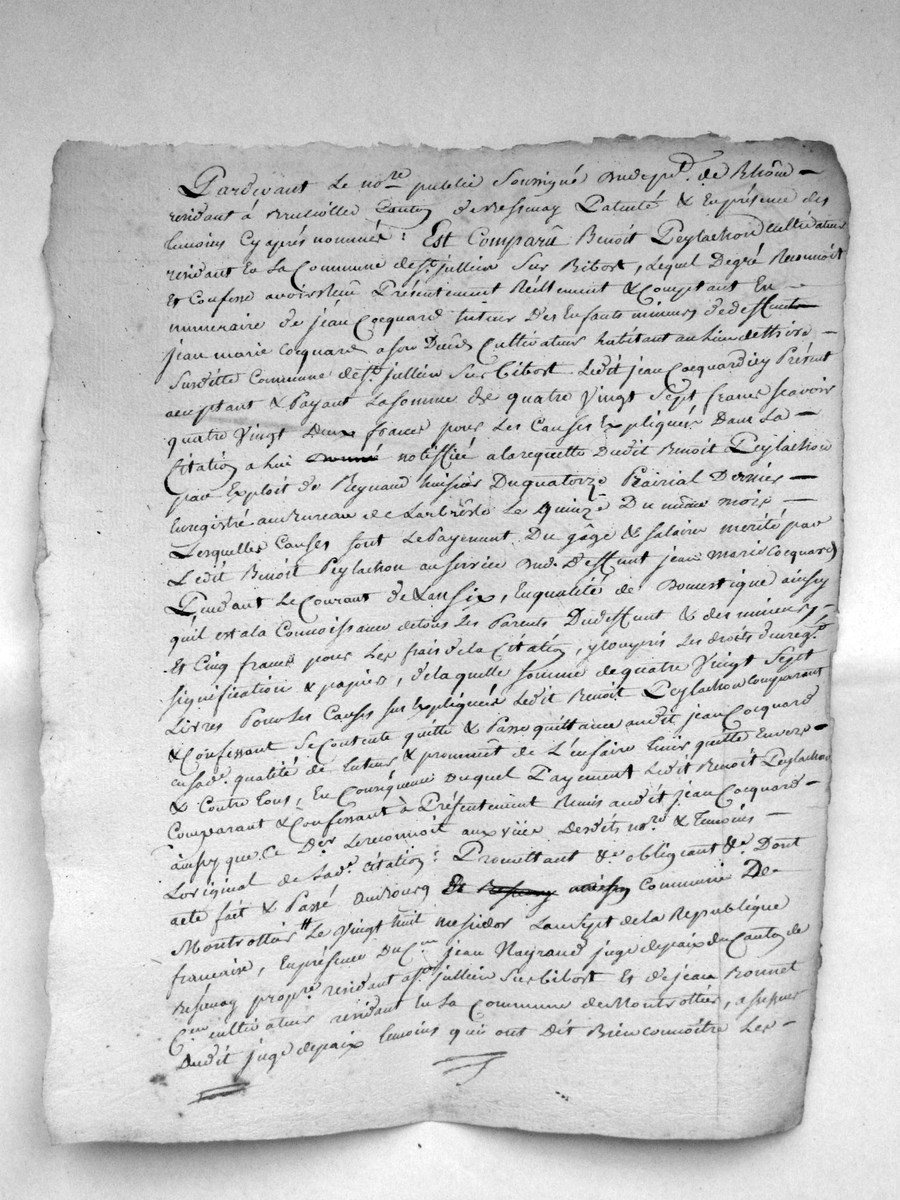 Pardevant Le no.re public Soussigné Dud. dep.t de Rhône —
résidant à Brullolle Canton de Bessenay Patenté & En présence des
témoins Cy après nommés: Est Comparû Benoit Peylachon cultivateur
résidant En La Commune de S.t jullien Sur Bibost, Lequel De gré Reconnoit
Et Confesse avoir Reçu Présentement Réellement & Comptant En —
numeraire de jean Cocquard tuteur Des Enfants mineurs de deffunt
jean marie Cocquard a son Décès Cultivateur habitant au lieu de —
Susditte Commune de S.t jullien Sur Bibost Ledit jean Cocquard icy Présent
acceptant & Payant La Somme de quatre Vingt Sept francs Scavoir
quatre Vingt Deux francs pour Les Causes Expliquées Dans La
Citation a lui notiffiée a la requette Dudit Benoit Peylachon
par Exploit de Reynaud huissier Du quatorze Prairial Dernier —
Enregistré au Bureau de Larbresle Le Quinze Du même mois —
Lesquelles Causes Sont Le Payement Du gâge & Salaire mérité par
Ledit Benoit Peylachon au Service Dud. Deffunt jean Marie Cocquard
Pendant Le Courant de L'an Six, En qualité de Domestique ainsy
quil est a la Connoissance de tous Les Parents Du deffunt & des mineurs,
Et Cinq francs pour Les frais de la Citation, y Compris Les droits d'enreg.t
signiffication & papier, de laquelle Somme de quatre Vingt Sept
Livres Pour les Causes Sus Expliquées Ledit Benoit Peylachon Comparant
& Confessant Se Contente quitte & Passe quittance audit jean Cocquard
en Sad. qualité de tuteur & promet de L'en faire tenir quitte Envers
& Contre tous, En Conséquence Duquel Payement Ledit Benoit Peylachon
Comparant & Confessant à Présentement Remis audit jean Cocquard —
ainsy que Ce D.er Le reconnoit aux vüe Desdits no.re & Temoins —
L'original de Lad. Citation: Promettant & obligeant & Dont
acte fait & Passé au Bourg Commune De —
Montrottier Le Vingt huit messidor L'an Sept de la Republique
française, En présence Du C.en jean Nayrand juge de paix du Canton de
Bessenay propre. résidant a S.t jullien Sur Bibost Et de jean Bonnet
C.en cultivateur résidant En La Commune de Montrottier,
Dudit juge de paix temoins qui ont Dit Bien connoitre Les —